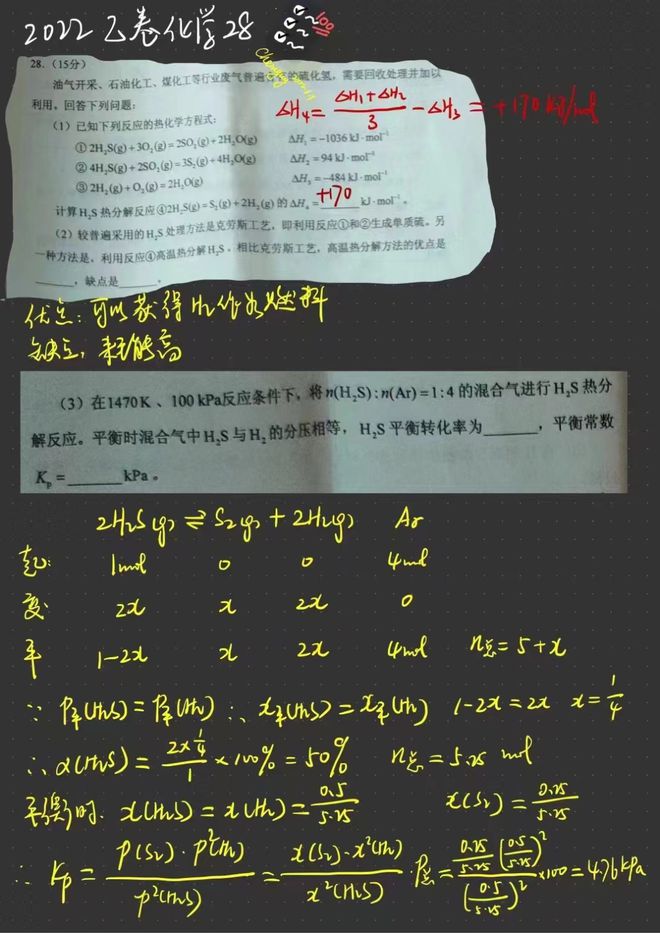 2022 乙卷化学28
28.(15分)
油气开采、石油化工、煤化工等行业废气普遍含有的硫化氢,需要回收处理并加以
利用。回答下列问题:
ΔH₄ = (ΔH₁+ΔH₂)/3 − ΔH₃ = +170 kJ/mol
(1)已知下列反应的热化学方程式:
① 2H₂S(g)+3O₂(g)=2SO₂(g)+2H₂O(g) ΔH₁=−1036 kJ·mol⁻¹
② 4H₂S(g)+2SO₂(g)=3S₂(g)+4H₂O(g) ΔH₂=94 kJ·mol⁻¹
③ 2H₂(g)+O₂(g)=2H₂O(g) ΔH₃=−484 kJ·mol⁻¹
计算H₂S热分解反应④2H₂S(g)=S₂(g)+2H₂(g)的ΔH₄=+170 kJ·mol⁻¹。
(2)较普遍采用的H₂S处理方法是克劳斯工艺,即利用反应①和②生成单质硫。另
一种方法是,利用反应④高温热分解H₂S。相比克劳斯工艺,高温热分解方法的优点是
______,缺点是______。
优点:可以获得H₂作为燃料
缺点:耗能高
(3)在1470 K、100 kPa反应条件下,将n(H₂S):n(Ar)=1:4的混合气进行H₂S热分
解反应。平衡时混合气中H₂S与H₂的分压相等,H₂S平衡转化率为______,平衡常数
Kp=______kPa。
2H₂S(g) ⇌ S₂(g) + 2H₂(g) Ar
起: 1mol 0 0 4mol
变: 2x x 2x 0
平 1−2x x 2x 4mol n总=5+x
∵ P平(H₂S)=P平(H₂) ∴ x平(H₂S)=x平(H₂) 1−2x=2x x=1/4
∴ α(H₂S)= (2×1/4)/1 ×100% = 50% n总=5.25 mol
平衡时. x(H₂S)=x(H₂)=0.5/5.25 x(S₂)=0.25/5.25
∴ Kp = P(S₂)·P²(H₂)/P²(H₂S) = x(S₂)·x²(H₂)/x²(H₂S) ·P总 = (0.25/5.25)(0.5/5.25)²/(0.5/5.25)² ×100 = 4.76 kPa